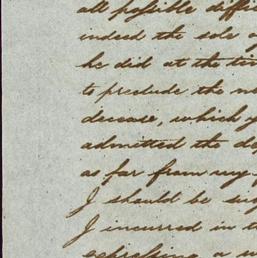 all possible diffi
indeed the sole
he did at the ti
to preclude the
decease, which y
admitted the de
as far from my
I should be
I incurred in t
expressing a